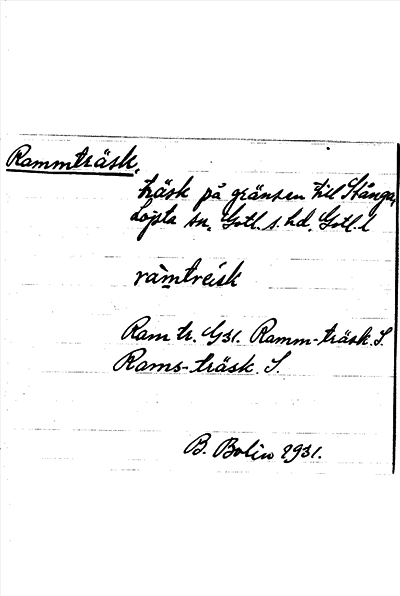 Rammträsk,
träsk på gränsen till Stånga,
Lojsta sn, Gotl. s. hd, Gotl. l
ràmtreisk
Ram tr. G31. Ramm-träsk. S.
Rams-träsk. S.
B. Bolin 1931.